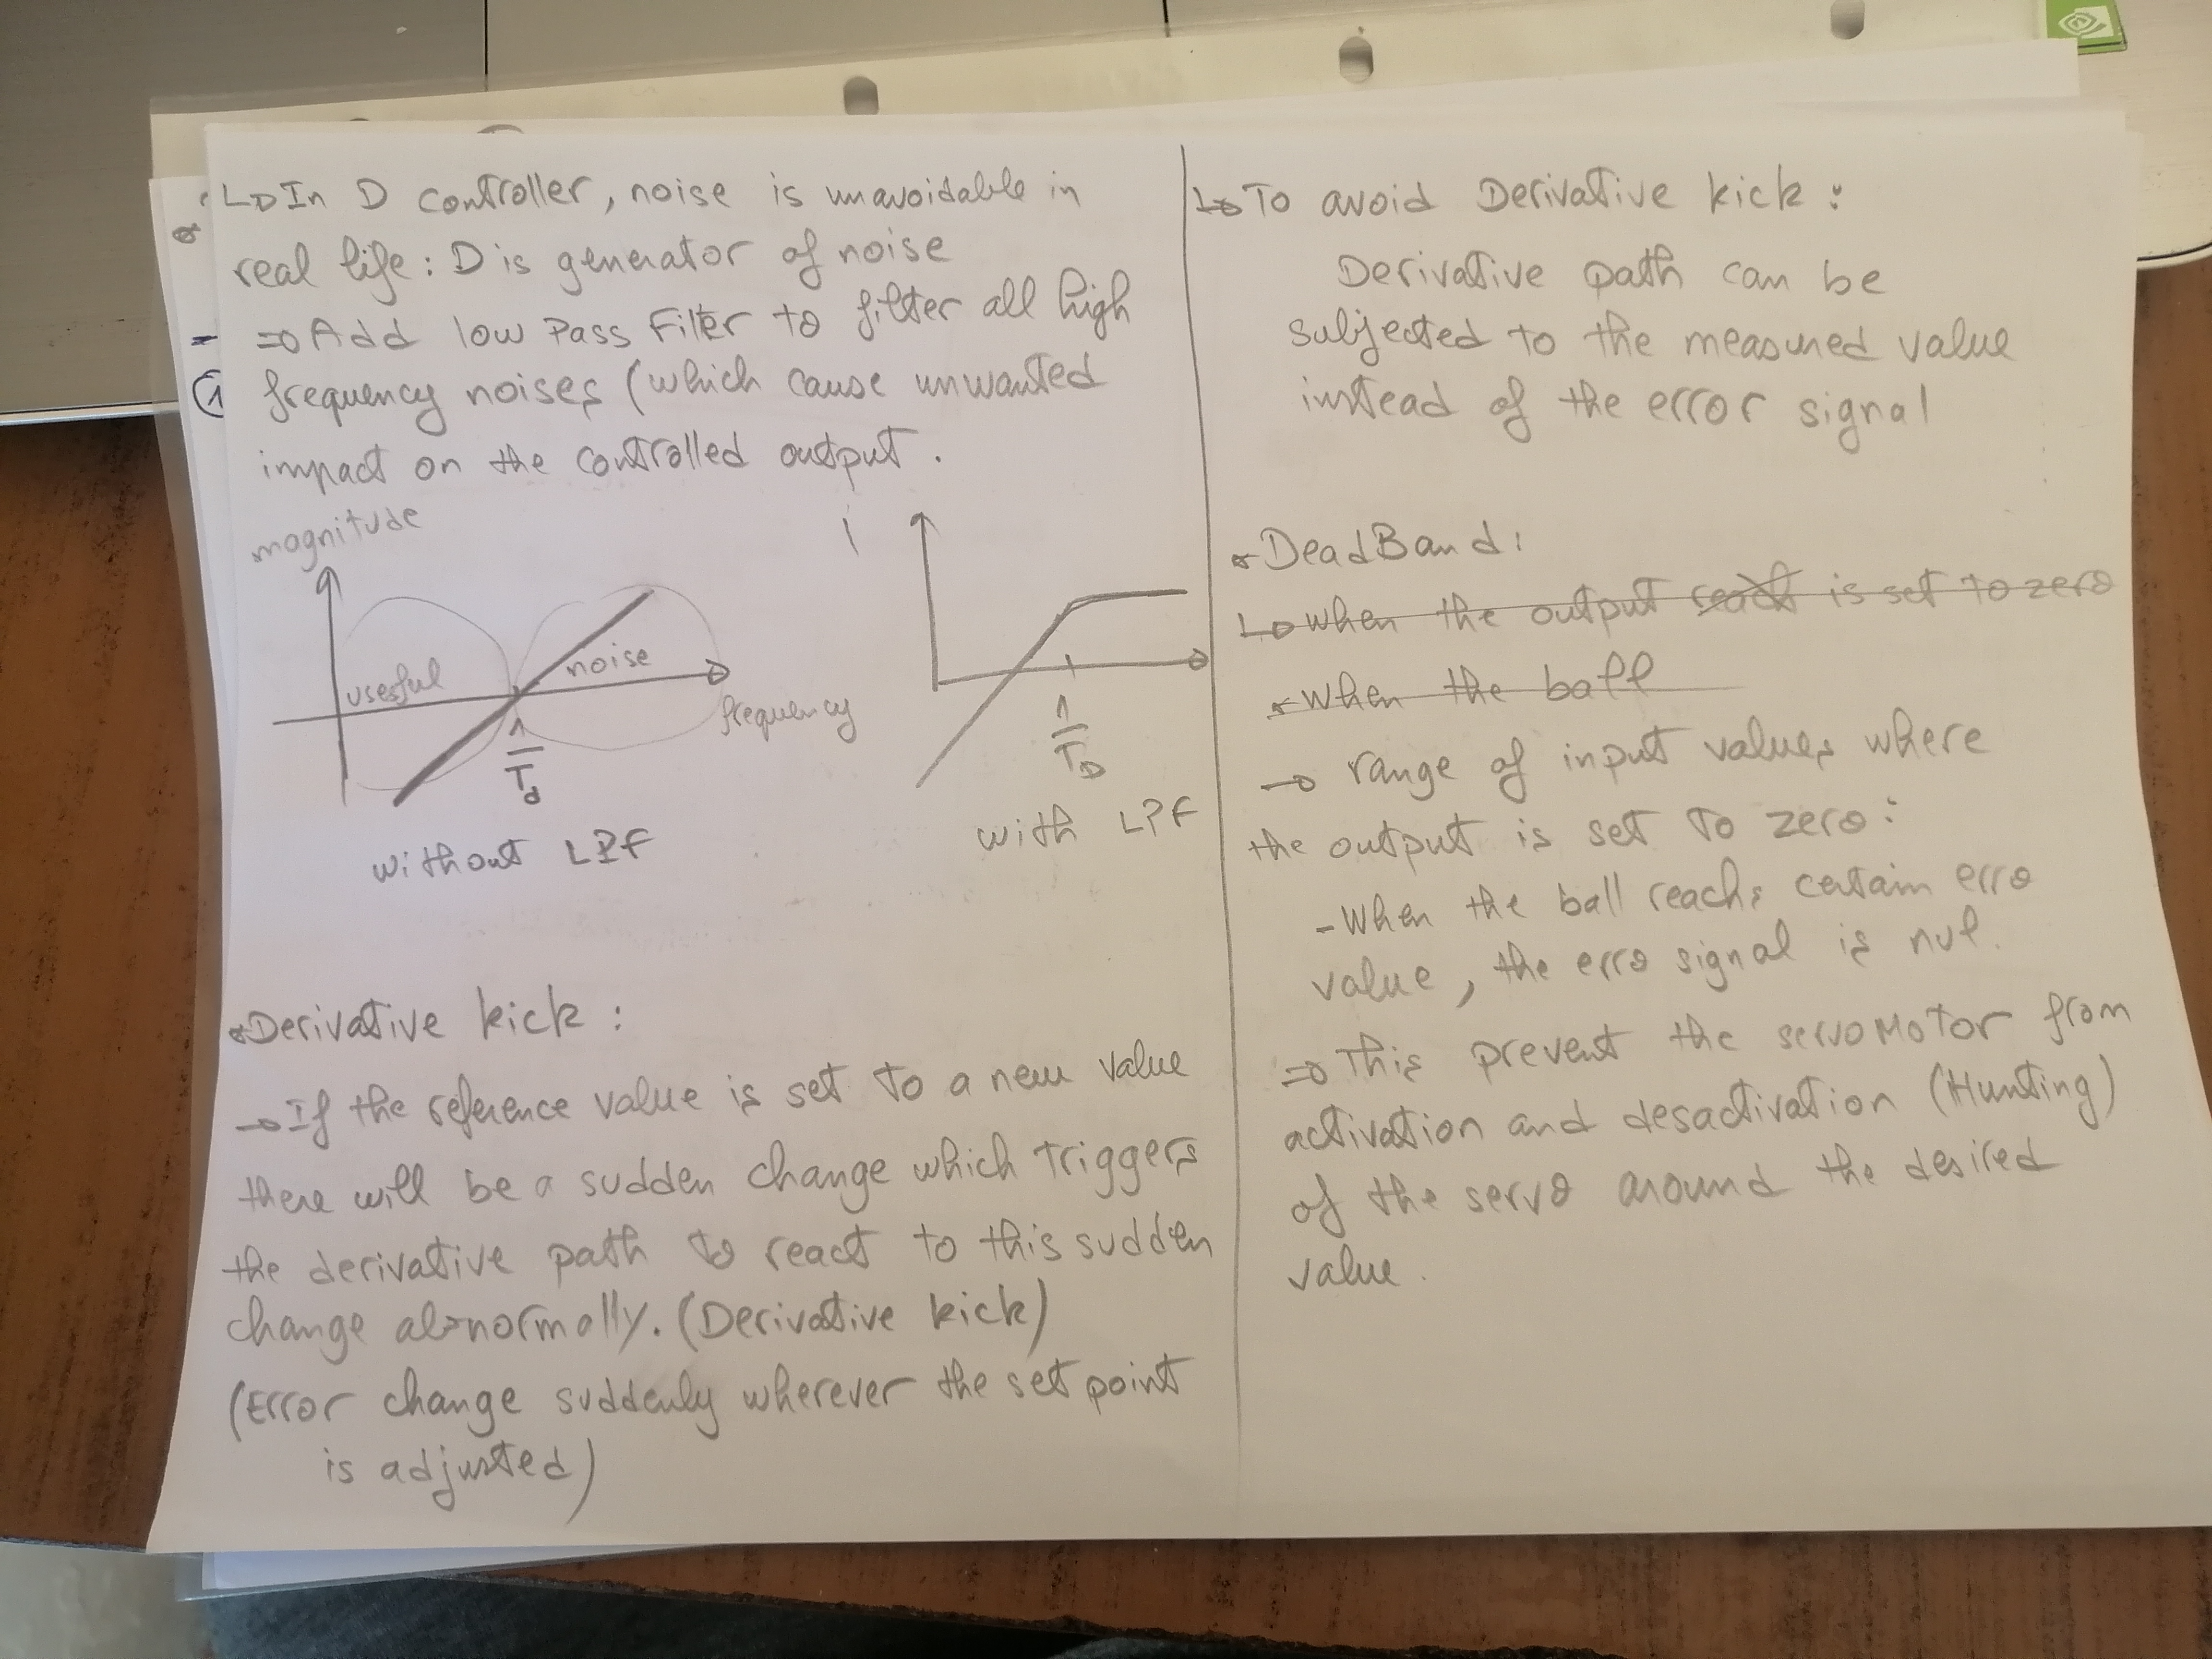 In D controller, noise is unavoidable in
real life: D is generator of noise
⇒ Add low Pass Filter to filter all high
frequency noises (which cause unwanted
impact on the controlled output.
magnitude
usesful
noise
frequency
1
Td
without LPF
1
TD
with LPF
Derivative kick:
→ If the reference value is set to a new value
there will be a sudden change which triggers
the derivative path to react to this sudden
change abnormally. (Derivative kick)
(Error change suddenly wherever the set point
is adjusted)
To avoid Derivative kick:
Derivative path can be
subjected to the measured value
instead of the error signal
DeadBand:
when the output reach is set to zero
when the ball
→ range of input values where
the output is set to zero:
- When the ball reachs certain erro
value, the erro signal is nul.
⇒ This prevent the servoMotor from
activation and desactivation (Hunting)
of the servo around the desired
value.
1